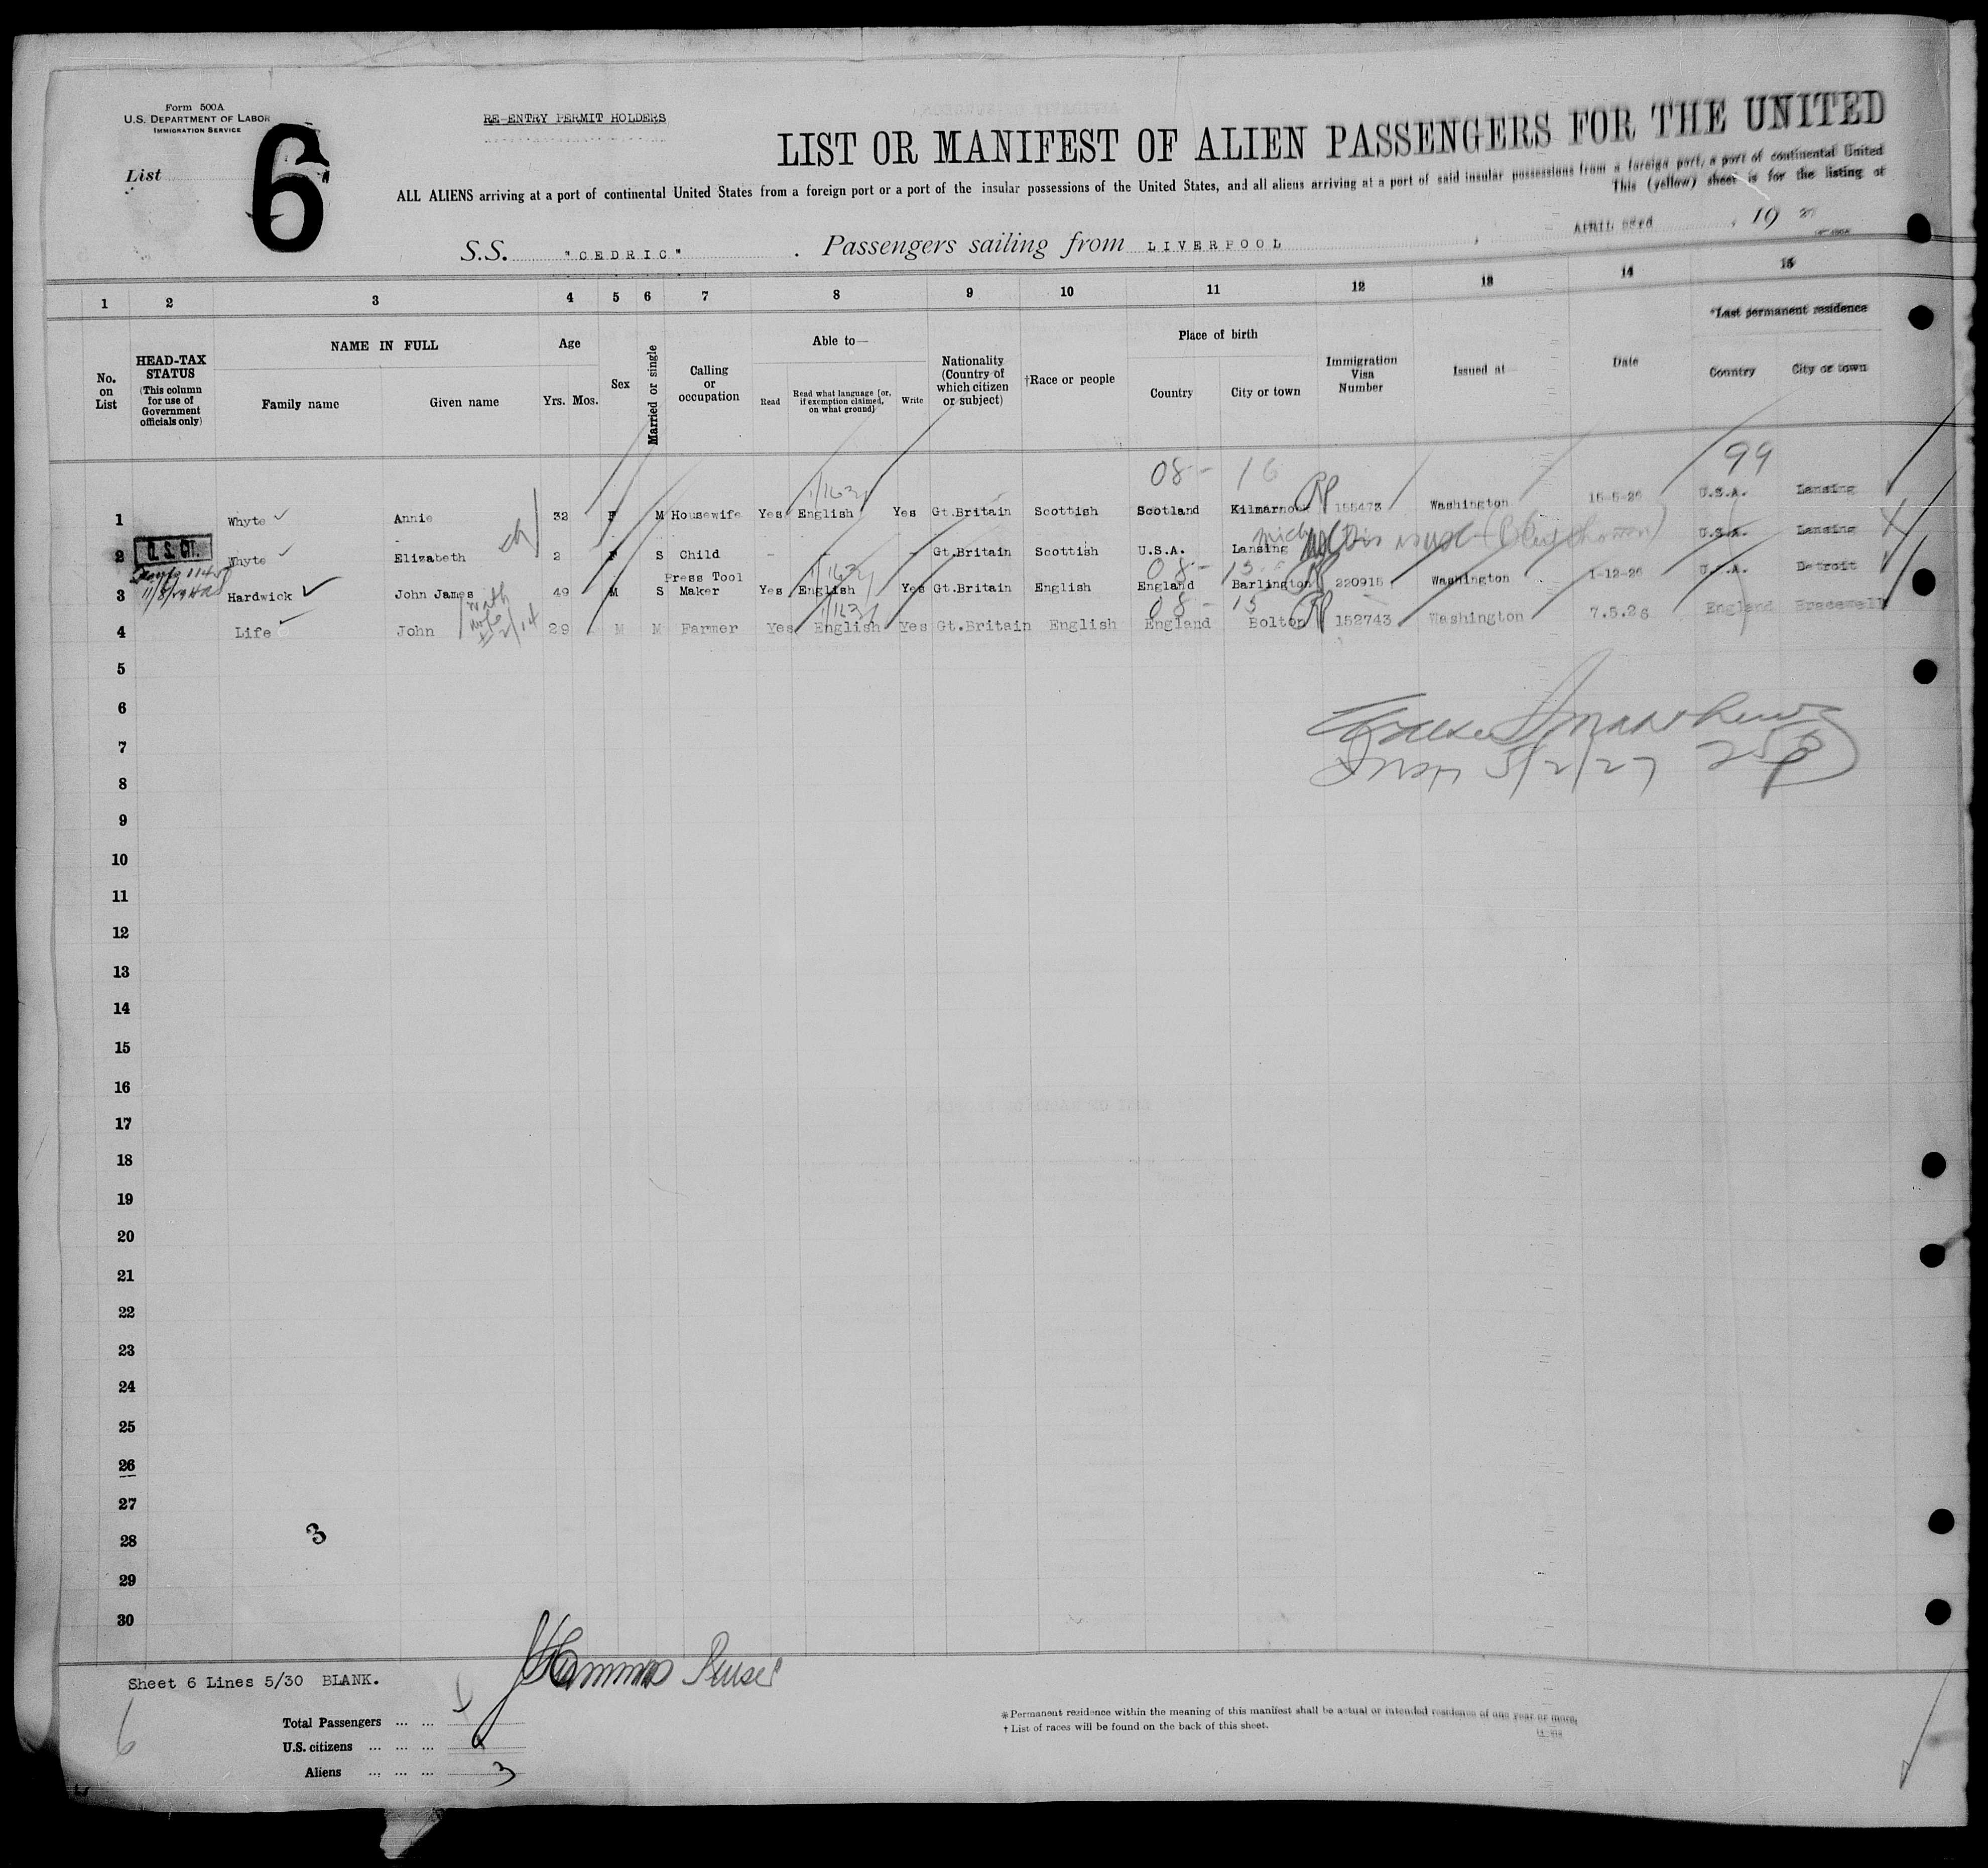 Form 500A
U.S. DEPARTMENT OF LABOR
IMMIGRATION SERVICE
RE-ENTRY PERMIT HOLDERS
List
6
LIST OR MANIFEST OF ALIEN PASSENGERS FOR THE UNITED
ALL ALIENS arriving at a port of continental United States from a foreign port or a port of the insular possessions of the United States, and all aliens arriving at a port of said insular possessions from a foreign port, a port of continental United
This (yellow) sheet is for the listing of
S.S. "CEDRIC" . Passengers sailing from LIVERPOOL , APRIL , 19 27
1 2 3 4 5 6 7 8 9 10 11 12 13 14 15
No. on List
HEAD-TAX STATUS (This column for use of Government officials only)
NAME IN FULL
Family name Given name
Age
Yrs. Mos.
Sex
Married or single
Calling or occupation
Able to—
Read Read what language [or, if exemption claimed, on what ground] Write
Nationality (Country of which citizen or subject)
†Race or people
Place of birth
Country City or town
Immigration Visa Number
Issued at
Date
*Last permanent residence
Country City or town
08- 16 99
1 Whyte Annie 32 F M Housewife Yes English Yes Gt.Britain Scottish Scotland Kilmarnock RP 155473 Washington 15-5-26 U.S.A. Lansing
2 U.S. CIT. Whyte Elizabeth ch 2 F S Child - - - Gt.Britain Scottish U.S.A. Lansing Mich U.S.A. Lansing
08- 15
3 Hardwick John James 49 M S Press Tool Maker Yes English Yes Gt.Britain English England Barlington RP 220915 Washington 1-12-26 U.S.A. Detroit
08- 15
4 Life John 29 M M Farmer Yes English Yes Gt.Britain English England Bolton RP 152743 Washington 7.5.26 England Bracewell
5
6
7
Insp 5/2/27
8
9
10
11
12
13
14
15
16
17
18
19
20
21
22
23
24
25
26
27
28
3
29
30
Sheet 6 Lines 5/30 BLANK.
Purser
6
Total Passengers ... ...
U.S. citizens ... ... ...
Aliens ... ... ... 3
*Permanent residence within the meaning of this manifest shall be actual or intended residence of one year or more.
† List of races will be found on the back of this sheet.